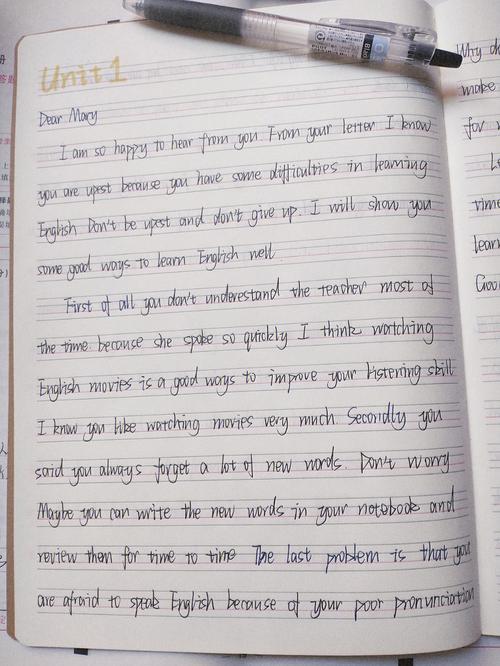 Unit 1
Dear Mary
I am so happy to hear from you. From your letter I know
you are upest because you have some difficulties in learning
English Don't be upest and don't give up. I will show you
some good ways to learn English well
First of all you don't underestand the teacher most of
the time because she spoke so quickly I think watching
English movies is a good ways to improve your listening skill
I know you like watching movies very much. Secondly you
said you always forget a lot of new words. Don't worry
Maybe you can write the new words in your notebook and
review them for time to time The last problem is that your
are afraid to speak English because of your poor pronunciation
Why
make
for
time
learn